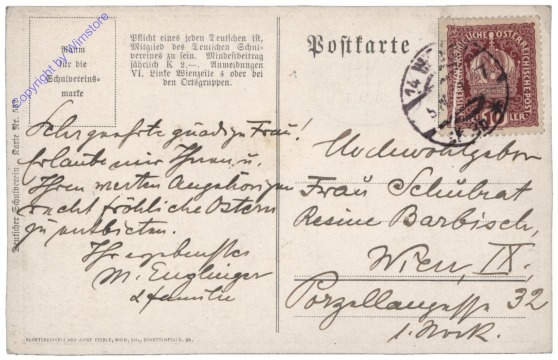 Raum
für die
Schulvereins-
marke
Pflicht eines jeden Deutschen ist,
Mitglied des Deutschen Schul-
vereines zu sein. Mindestbeitrag
jährlich K 2.—. Anmeldungen
VI. Linke Wienzeile 4 oder bei
den Ortsgruppen.
Copyright by Wimstore
Deutscher Schulverein Karte Nr.
Postkarte
14 W
Sehr geehrte gnädige Frau!
Erlaube mir Ihnen u.
Ihren werten Angehörigen
recht fröhliche Ostern
zu entbieten.
Ihr ergebenster
M. Englinger
& familie
Hochwohlgeboren
Frau Schulrat
Resine Barbisch,
Wien, IX,
Porzellangasse 32
1. Stock.